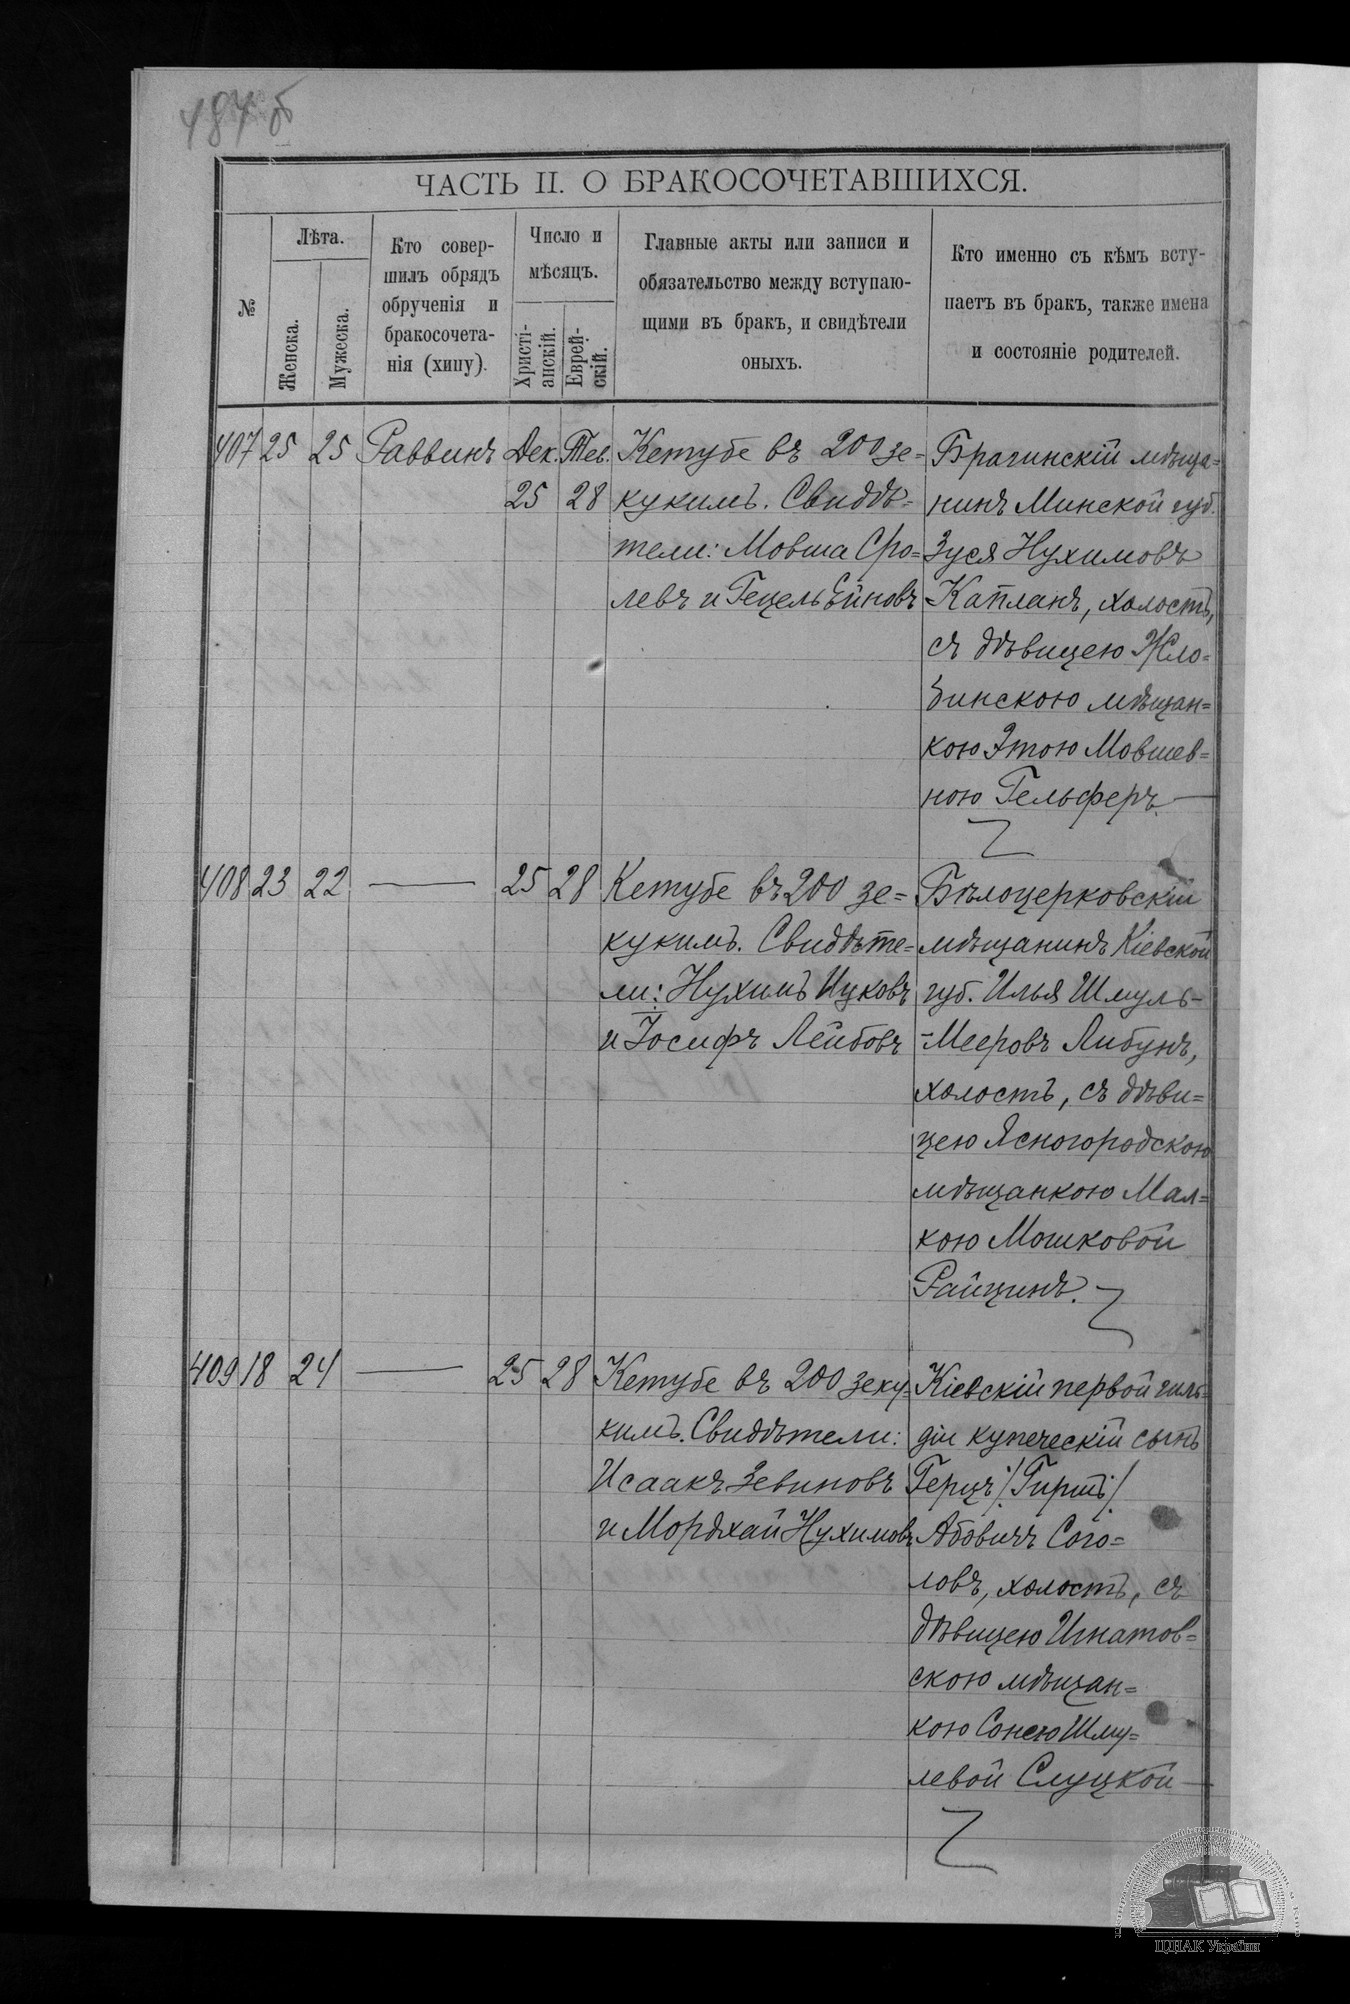 484 об
ЧАСТЬ II. О БРАКОСОЧЕТАВШИХСЯ.
№
Лѣта.
Женска.
Мужеска.
Кто совер-
шилъ обрядъ
обрученія и
бракосочета-
нія (хипу).
Число и
мѣсяцъ.
Христі-
анскій.
Еврей-
скій.
Главные акты или записи и
обязательство между вступаю-
щими въ бракъ, и свидѣтели
оныхъ.
Кто именно съ кѣмъ всту-
паетъ въ бракъ, также имена
и состояніе родителей.
407 25 25 Раввинъ Дек. Тев.
25 28
Кетубе въ 200 зе=
кукимъ. Свидѣ=
тели: Мовша Сро=
левъ и Гецель Ейновъ
Брагинскій мѣща=
нинъ Минской губ.
Зуся Нухимовъ
Капланъ, холостъ,
съ дѣвицею Жло=
бинскою мѣщан=
кою Этою Мовшев=
ною Гельферъ.
408 23 22 — 25 28
Кетубе въ 200 зе=
кукимъ. Свидѣте=
ли: Нухимъ Ицковъ
и Іосифъ Лейбовъ
Бѣлоцерковскій
мѣщанинъ Кіевской
губ. Илья Шмуль-
=Мееровъ Либунъ,
холостъ, съ дѣви=
цею Ясногородскою
мѣщанкою Мал=
кою Мошковой
Райцинъ.
409 18 24 — 25 28
Кетубе въ 200 зеку=
кимъ. Свидѣтели:
Исаакъ Зевиновъ
и Мордхай Нухимовъ
Кіевскій первой гиль=
діи купеческій сынъ
Герцъ /:Гиршъ:/
Абовичъ Сого=
ловъ, холостъ, съ
дѣвицею Игнатов=
скою мѣщан=
кою Сонею Шму=
левой Слуцкой
ЦДІАК України